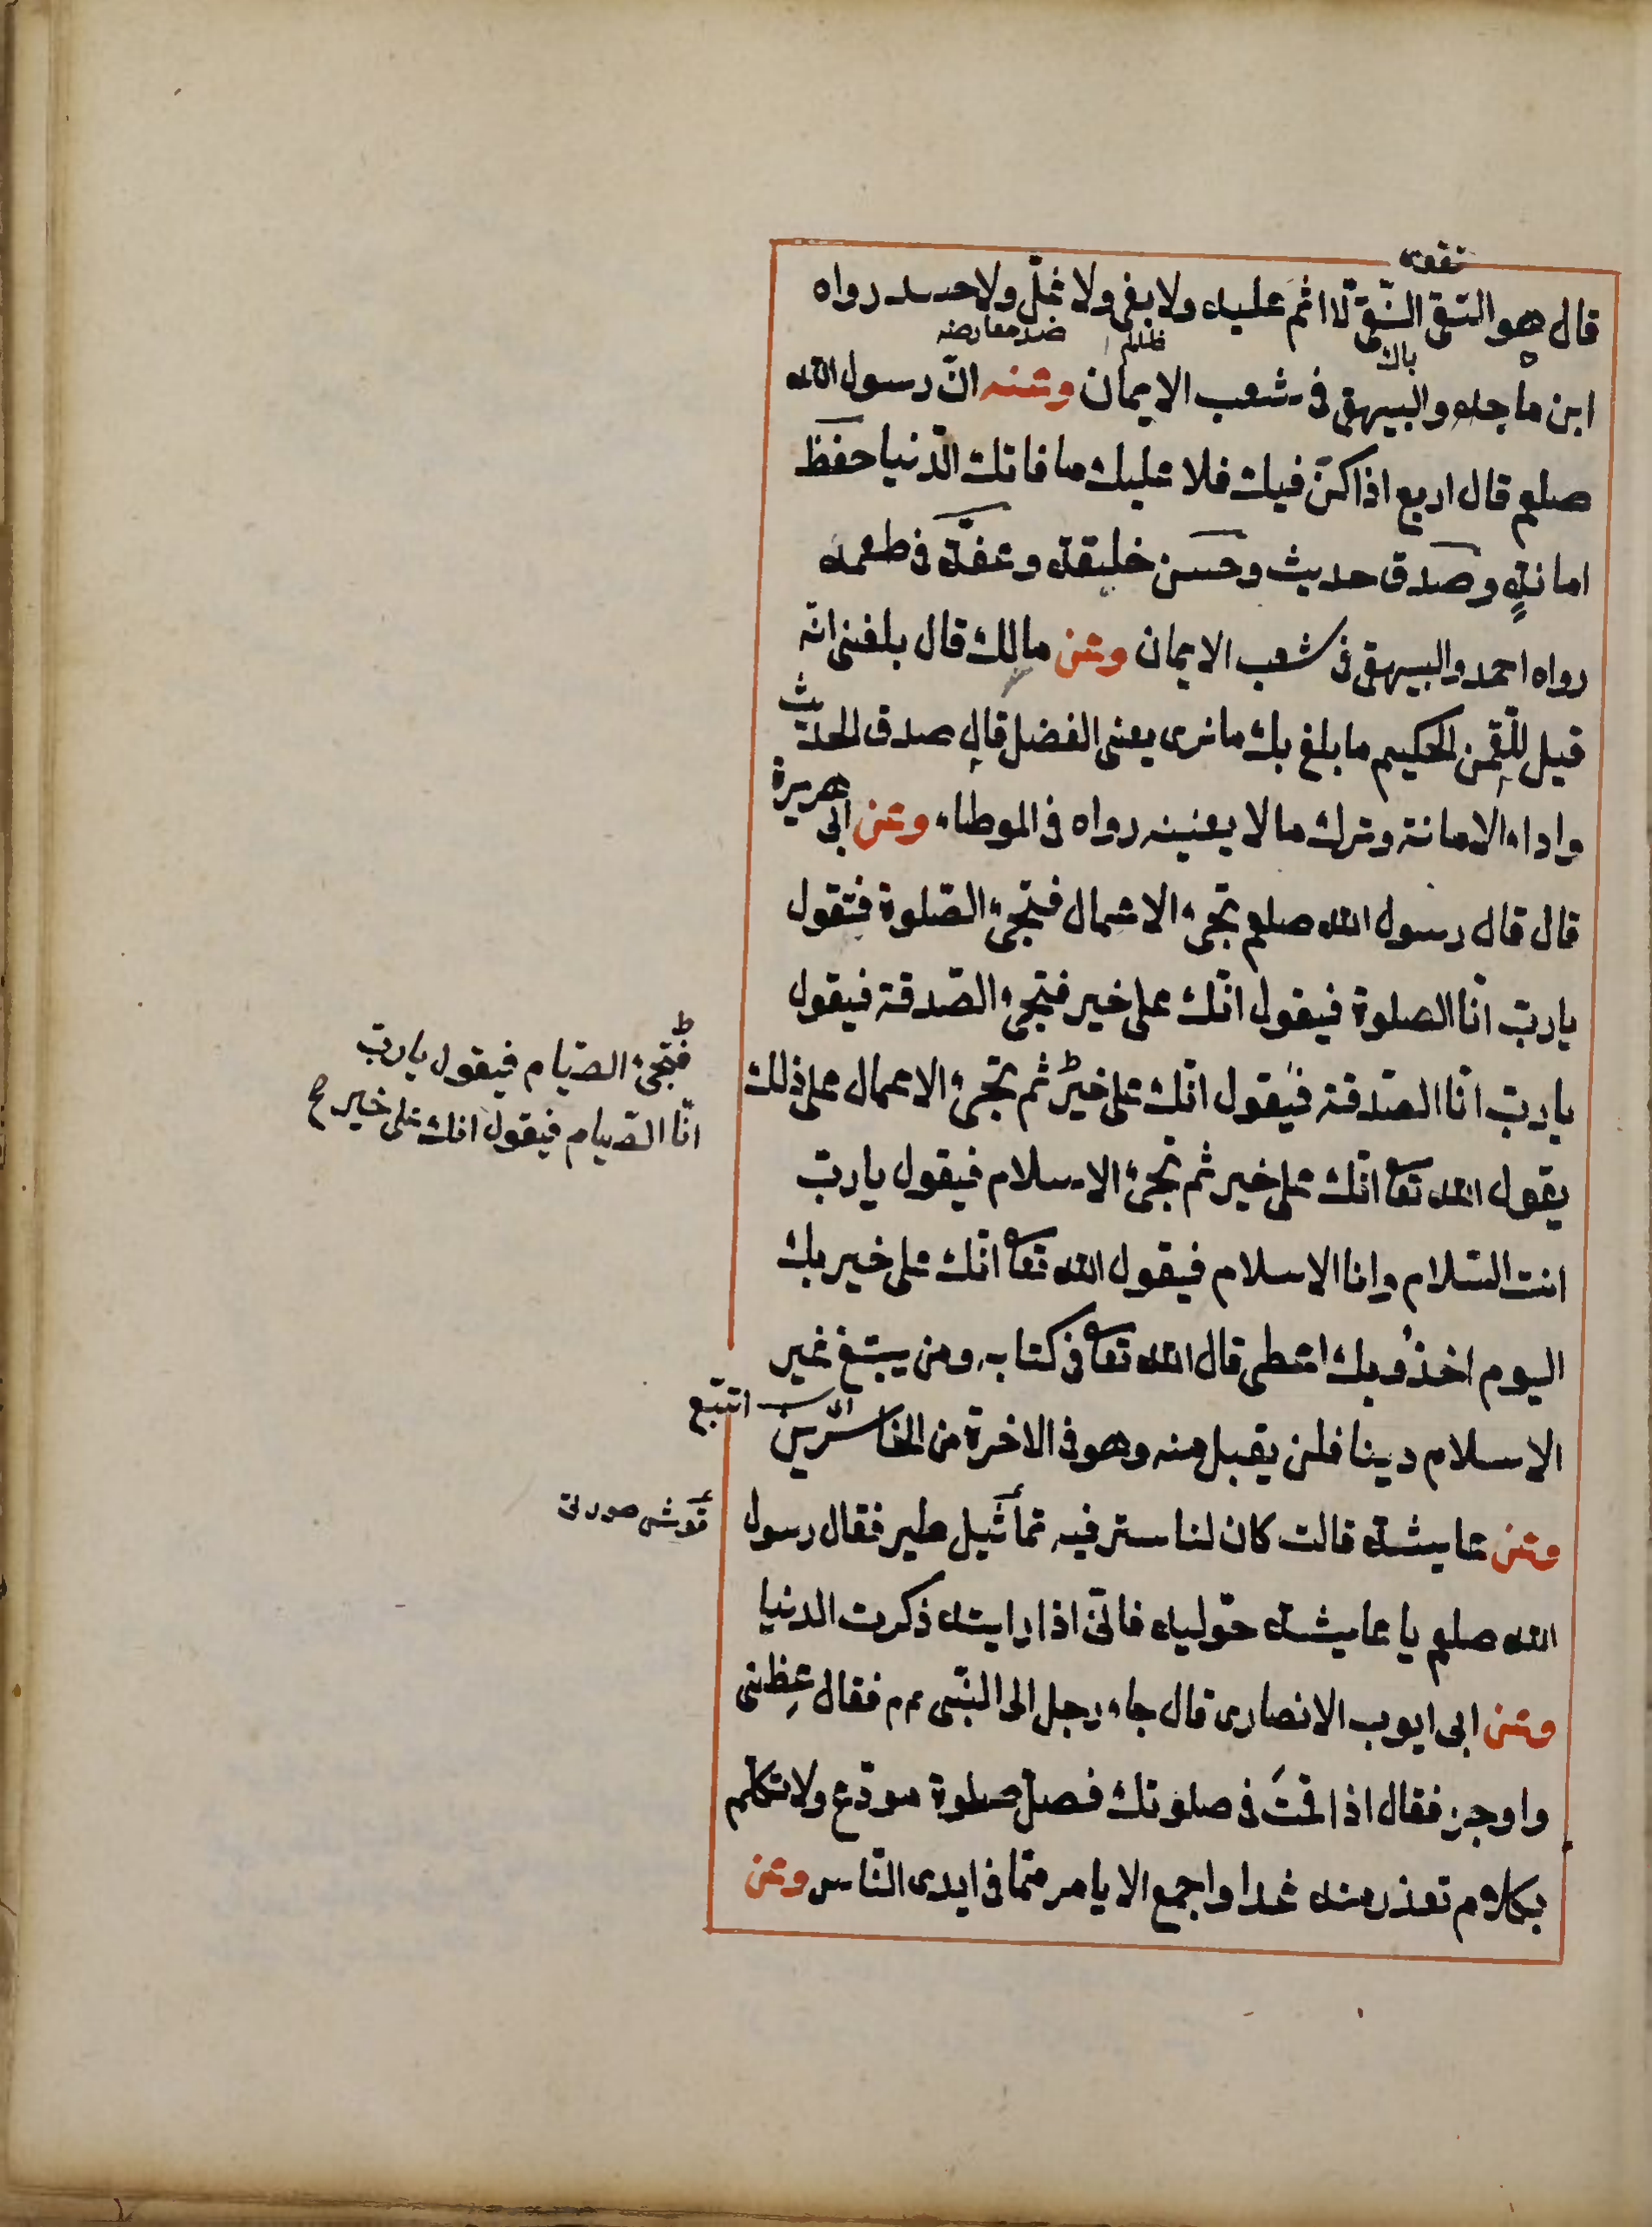 قال هو التقى النّقىّ لا اثم عليه ولا بغى ولا غلّ ولا حسد رواه
پاك
ظلم
ابن ماجه والبيهقى فى شعب الايمان وعنه انّ رسول الله
صلعم قال اربع اذا كنّ فيك فلا عليك ما فاتك الدّنيا حفظ
امانةٍ وصدق حديث وحسن خليقة وعفّة فى طعمة
رواه احمد والبيهقى فى شعب الايمان وعن مالك قال بلغنى انّه
قيل للقمن الحكيم ما بلغ بك ما نرى يعنى الفضل قال صدق الحديث
واداء الامانة وترك ما لا يعنينه رواه فى الموطاء وعن ابى هريرة
قال قال رسول الله صلعم تجىء الاعمال فتجىء الصّلوة فتقول
يا ربّ انّا الصلوة فيقول انّك على خير فتجىء الصّدقة فيقول
يا ربّ انّا الصّدقة فيقول انّك على خير ثم تجىء الاعمال على ذلك
فتجىء الصّيام فيقول يا ربّ
انّا الصّيام فيقول انك على خير صح
يقول الله تعا انّك على خير ثم تجىء الاسلام فيقول يا ربّ
انت السّلام وانا الاسلام فيقول الله تعا انّك على خير بك
اليوم اخذُ وبك اعطى قال الله تعا فى كتابه ومن يبتغ غير
الاسلام دينا فلن يقبل منه وهو فى الاخرة من الخاسرين
وعن عايشة قالت كان لنا ستر فيه تماثيل طير فقال رسول
الله صلعم يا عايشة حوّليه فانّى اذا رايته ذكرت الدنيا
وعن ابى ايوب الانصارى قال جاء رجل الى النبّى عم فقال عِظنى
واوجز فقال اذا قمتَ فى صلوتك فصلّ صلوة مودّع ولا تكلّم
بكلام تعذر منه غدا واجمع الاياس ممّا فى ايدى النّاس وعن